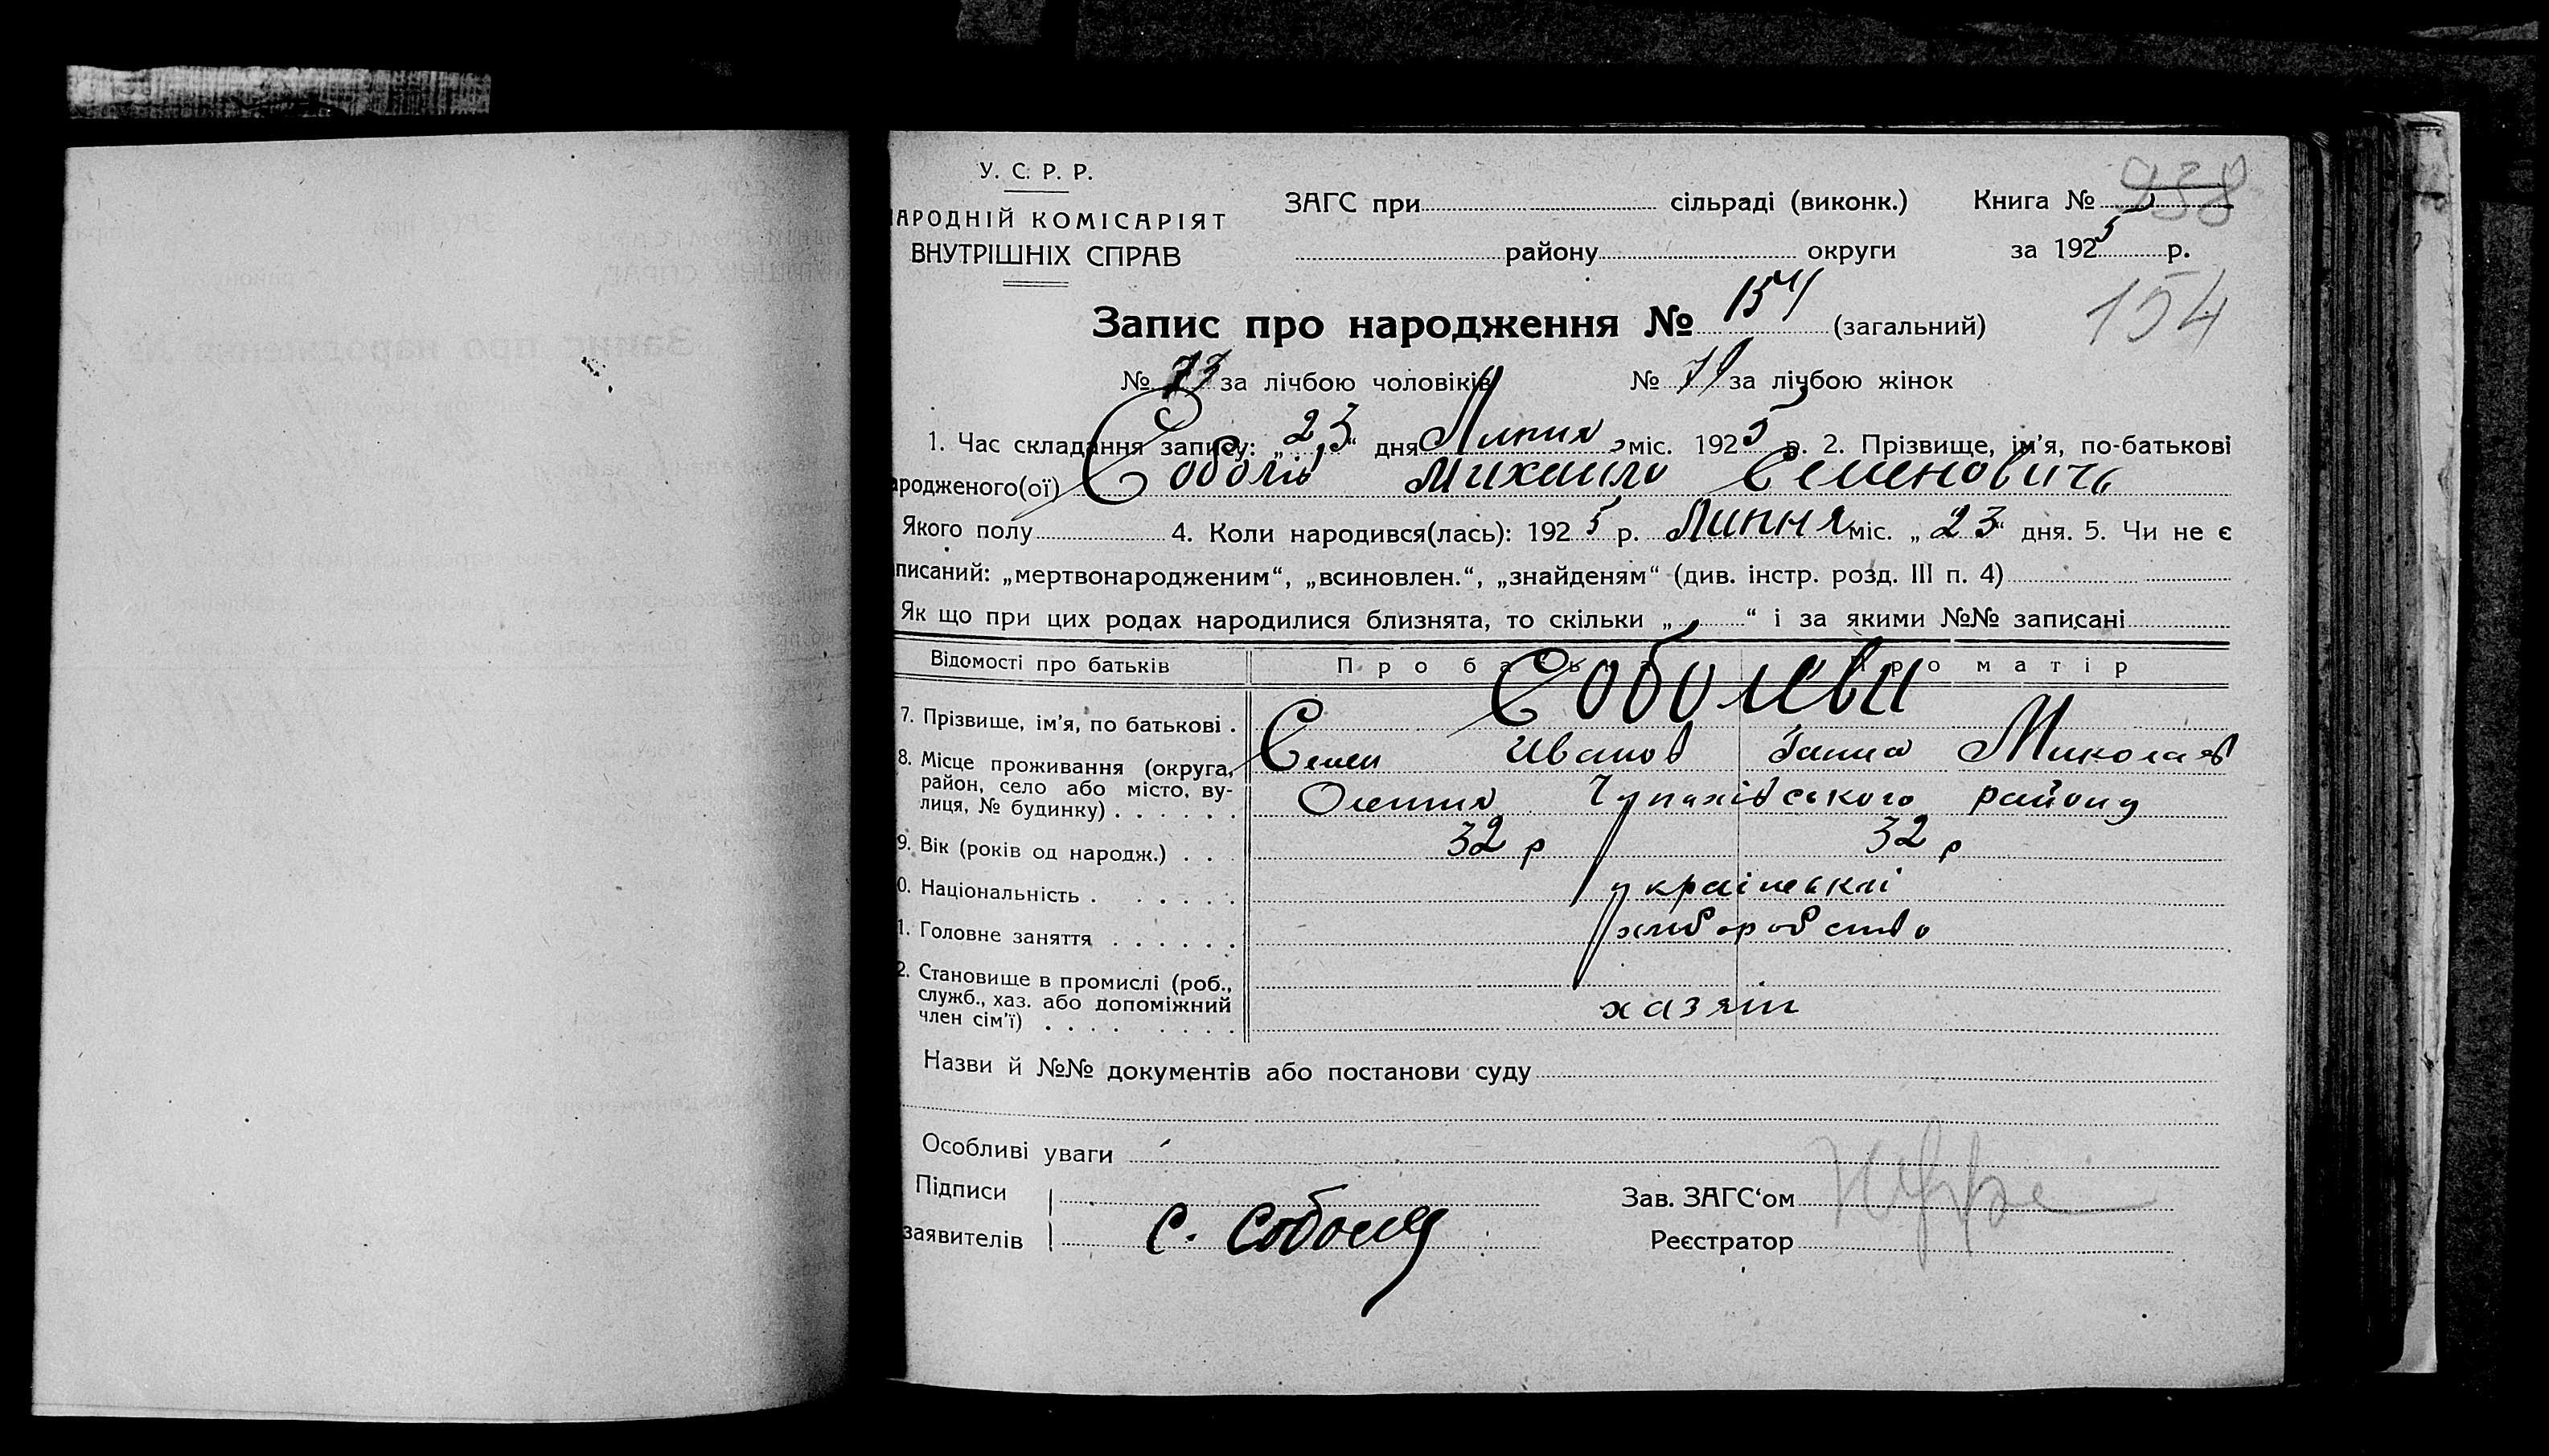 У. С. Р. Р.
АРОДНІЙ КОМІСАРІЯТ
ВНУТРІШНІХ СПРАВ
ЗАГС при сільраді (виконк.) Книга № 938
району округи за 1925 р.
Запис про народження № 154 (загальний) 154
№ за лічбою чоловіків № за лічбою жінок
1. Час складання запису: „23“ дня Липня міс. 1925 р. 2. Прізвище, ім’я, по-батькові
ародженого(ої) Соболів Михайло Семеновичь
Якого полу 4. Коли народився(лась): 1925 р. Липня міс. „23“ дня. 5. Чи не є
писаний: „мертвонародженим“, „всиновлен.“, „знайденям“ (див. інстр. розд. III п. 4)
Як що при цих родах народилися близнята, то скільки „ “ і за якими №№ записані
Відомості про батьків Про батька Про матір
Соболеви
7. Прізвище, ім’я, по батькові .
Семен Иванов Ганна Миколаєв
8. Місце проживання (округа,
район, село або місто, ву-
лиця, № будинку) . . . . . .
Чупахівського району
9. Вік (років од народж.) . . 32 р 32 р
0. Національність . . . . . . українські
1. Головне заняття . . . . . . хліборобство
2. Становище в промислі (роб.,
служб., хаз. або допоміжний
член сім’ї) . . . . . . . . хазяїн
Назви й №№ документів або постанови суду
Особливі уваги
Підписи
заявителів С. Соболь
Зав. ЗАГС‘ом
Реєстратор